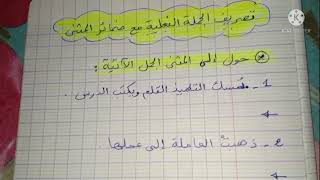 تصريف الجملة الفعلية مع ضمائر المثنى
حول إلى المثنى الجمل الآتية :
1 - يمسك التلميذ القلم ويكتب الدرس .
2 - ذهبت العاملة إلى عملها .